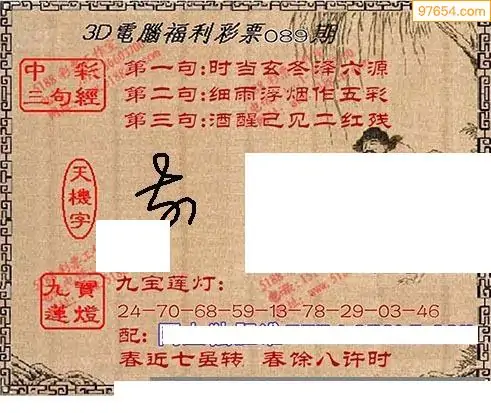 97654.com
3D電腦福利彩票089期
中彩三句經
第一句:时当玄冬泽六源
第二句:细雨浮烟作五彩
第三句:酒醒己见二红残
天機字
九寶蓮燈
九宝莲灯:
24-70-68-59-13-78-29-03-46
配:
春近七晷转 春馀八许时